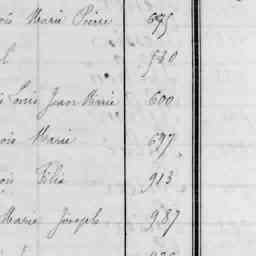 ois Marie Pierre 695
l 580
s Louis Jean Marie 600
ois Marie 697
ois Félix 913
Marie Joseph 987